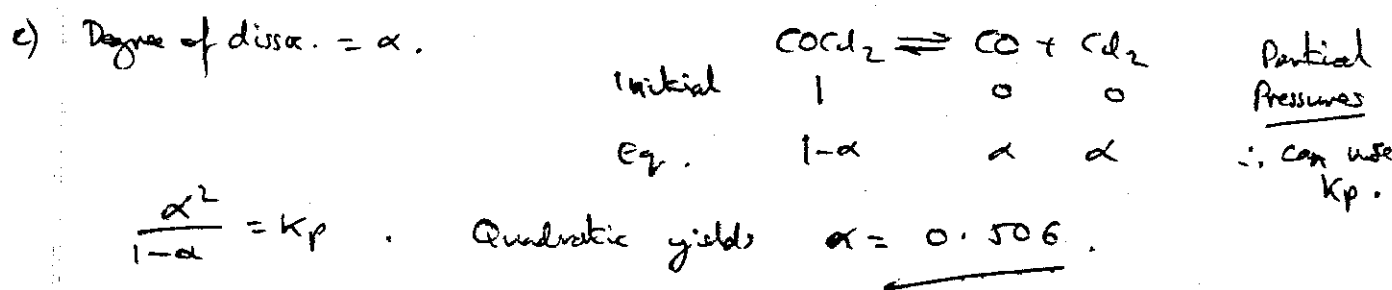 c) Degree of dissoc. = α.
COCl₂ ⇌ CO + Cl₂ Partial
Initial 1 0 0 Pressures
Eq. 1-α α α ∴ can use
Kp.
α²/(1-α) = Kp . Quadratic yields α = 0.506.